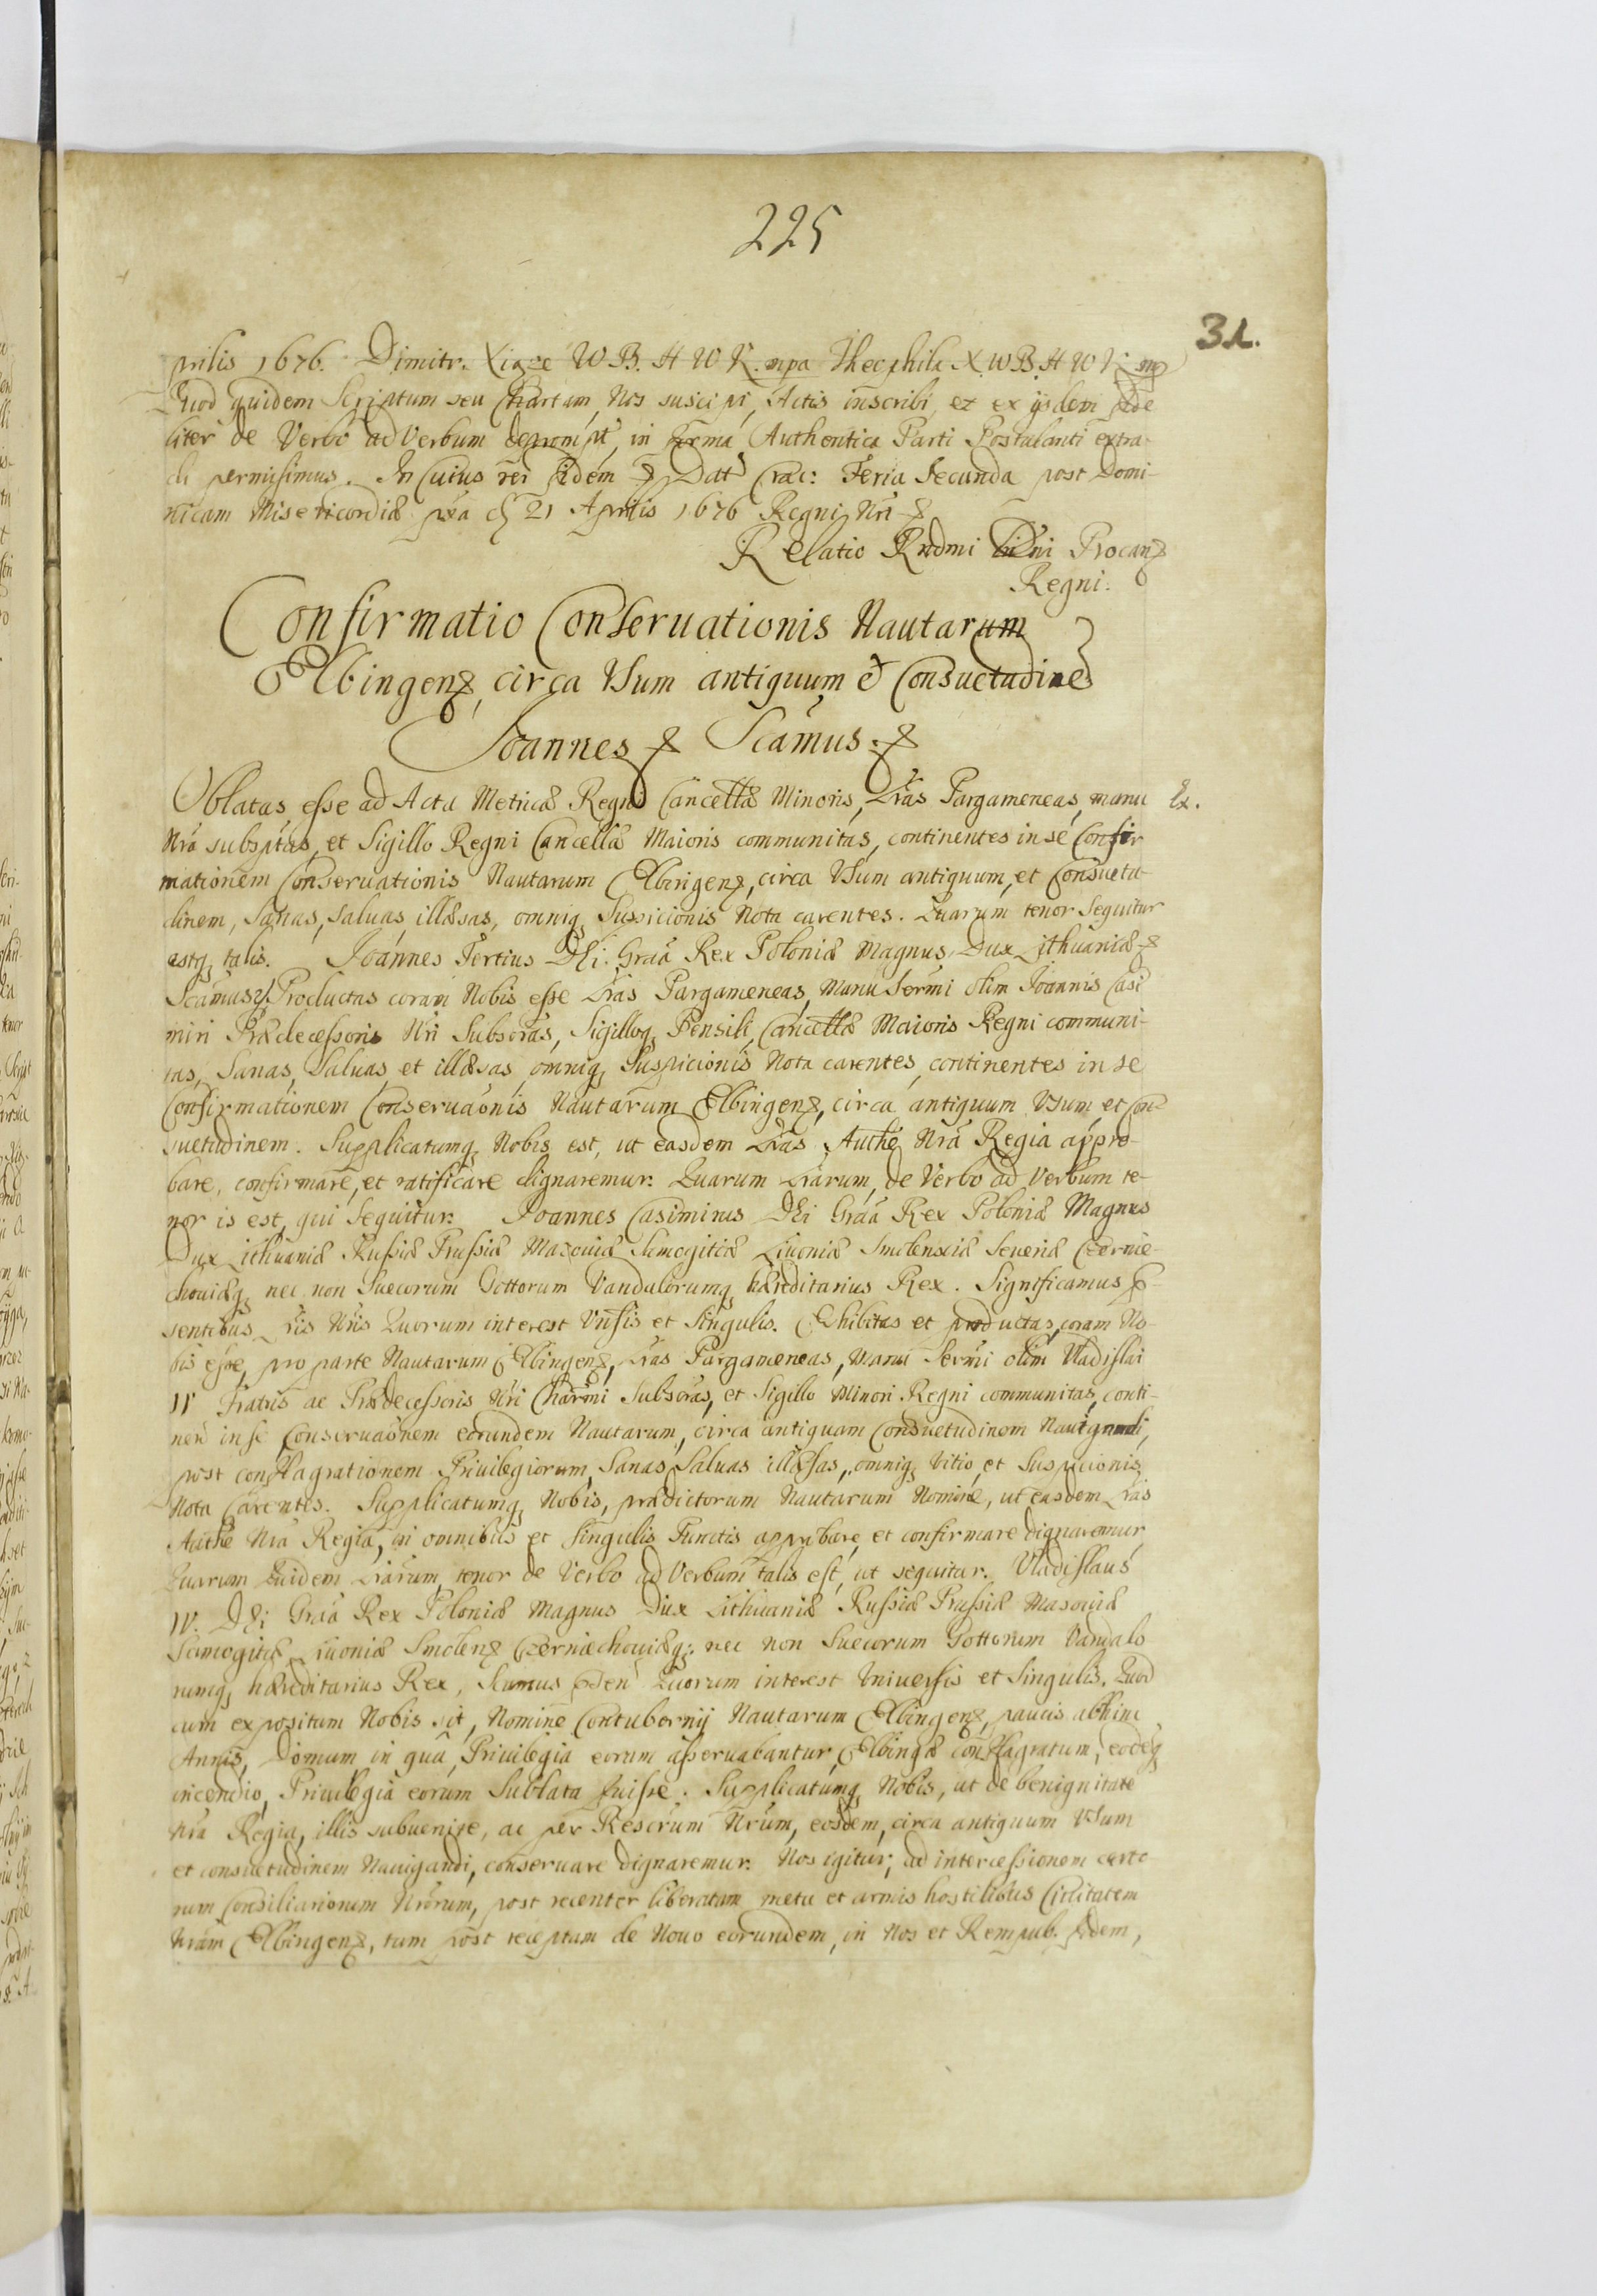 225
31.
prilis 1676. Dimitr. Xiąze W. B. H W K. mpa Theophila X. W B. H W K mp
Quod quidem Scriptum seu Chartam, Nos suscipi, Actis inscribi, et ex ijsdem fide
liter de Verbo ad Verbum deprompt, in forma Authentica Parti Postulanti extra-
di permisimus. In Cuius rei fidem Dat Crac: Feria Secunda post Domi-
nicam Misericordiæ 21 Aprilis 1676 Regni Nri
Relatio Rndmi Procan
Regni.
Confirmatio Conseruationis Nautarum
Elbingen, circa Vsum antiquum et Consuetudine
Joannes Scamus.
Oblatas esse ad Acta Metricæ Regni Cancellæ Minoris, Lras Pargameneas, manu Ex.
Nra subsptas, et Sigillo Regni Cancellæ Maioris communitas, continentes in se Confir
mationem Conseruationis Nautarum Elbingen, circa Vsum antiquum, et Consuetu-
dinem, Sanas, Saluas, illæsas, omniq Suspicionis Nota carentes. Quarum tenor Sequitur
estq talis. Joannes Tertius DEi Graa Rex Poloniæ Magnus Dux Lithuaniæ
Scamus Productas coram Nobis esse Lras Pargameneas, Manu Sermi olim Joannis Casi
miri Prædecessoris Nri Subscras, Sigilloq Pensili Cancellæ Maioris Regni communi-
tas, Sanas, Saluas, et illæsas, omniq Suspicionis Nota carentes, continentes in se
Confirmationem Conseruaonis Nautarum Elbingen, circa antiquum Vsum et Con-
suetudinem. Supplicatumq Nobis est, ut easdem Lras Authe Nra Regia appro-
bare, confirmare, et ratificare dignaremur. Quarum Lrarum, de Verbo ad Verbum te-
nor is est, qui Sequitur. Joannes Casimirus DEi Graa Rex Poloniæ Magnus
Dux Lithuaniæ Russiæ Prussiæ Masouiæ Samogitiæ Liuoniæ Smolensciæ Seueriæ Czernie-
chouiæq nec non Suecorum Gottorum Vandalorumq hæreditarius Rex. Significamus
sentibus Lris Nris Quorum interest Vnsis et Singulis. Exhibitas et productas coram No-
bis esse, pro parte Nautarum Elbingen, Lras Pargameneas, Manu Sermi olim Vladislai
IV Fratris ac Prædecessoris Nri Charmi Subscras, et Sigillo Minori Regni communitas, conti-
nen in se Conseruaonem eorundem Nautarum, circa antiquam Consuetudinem Nauigandi,
post conflagrationem Priuilegiorum, Sanas Saluas illæsas, omniq Vitio, et Suspicionis
Nota Carentes. Supplicatumq Nobis, prædictorum Nautarum Nomine, ut easdem Lras
Authe Nra Regia, in omnibus et singulis Punctis approbare, et confirmare dignaremur,
Quarum Quidem Lrarum, tenor de Verbo ad Verbum talis est, ut sequitur. Vladislaus
IV. DEi Graa Rex Poloniæ Magnus Dux Lithuaniæ Russiæ Prussiæ Masouiæ
Samogitiæ Liuoniæ Smolen Czerniechouiæq: nec non Suecorum Gottorum Vandalo
rumq hæreditarius Rex, Scamus Quorum interest Vniuersis et Singulis. Quod
cum expositum Nobis sit, Nomine Contubernij Nautarum Elbingen, paucis abhinc
Annis, Domum in qua Priuilegia eorum asseruabantur, Elbingæ conflagratum, eodeq
incendio, Priuilegia eorum Sublata fuisse. Supplicatumq Nobis, ut de benignitate
Nra Regia, illis subuenire, ac per Rescrum Nrum, eosdem, circa antiquum Vsum
et consuetudinem Nauigandi, conseruare dignaremur. Nos igitur, ad intercessionem certo
rum Consiliariorum Nrorum, post recenter liberatam metu et armis hostilibus Ciuitatem
Nram Elbingen, tum post receptam de Nouo eorundem, in Nos et Rempub. fidem,